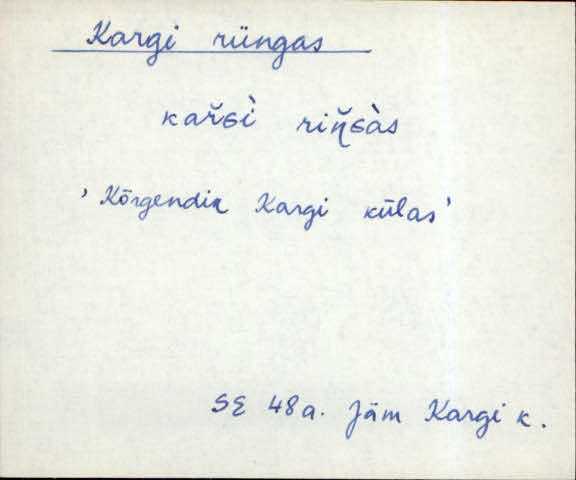 Kargi rüngas
kar̆ɢì riŋ̆ɢàs
'Kõrgendik Kargi külas'
SE 48a. Jäm Kargi k.